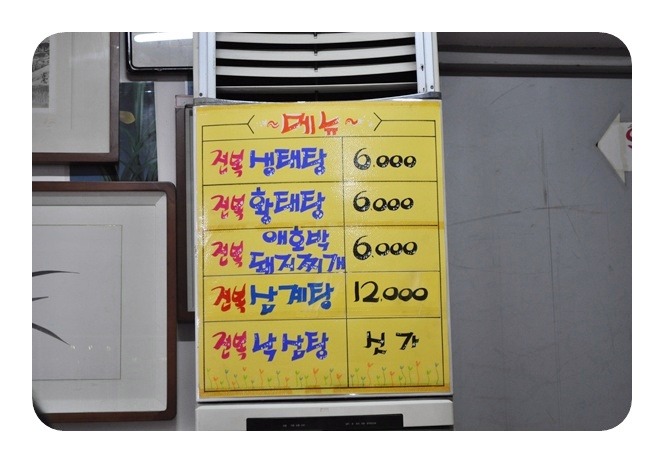 ~메뉴~
전복 생태탕 6,000
전복 황태탕 6,000
전복 애호박
돼지찌개 6,000
전복 삼계탕 12,000
전복 낙삼탕 싯가